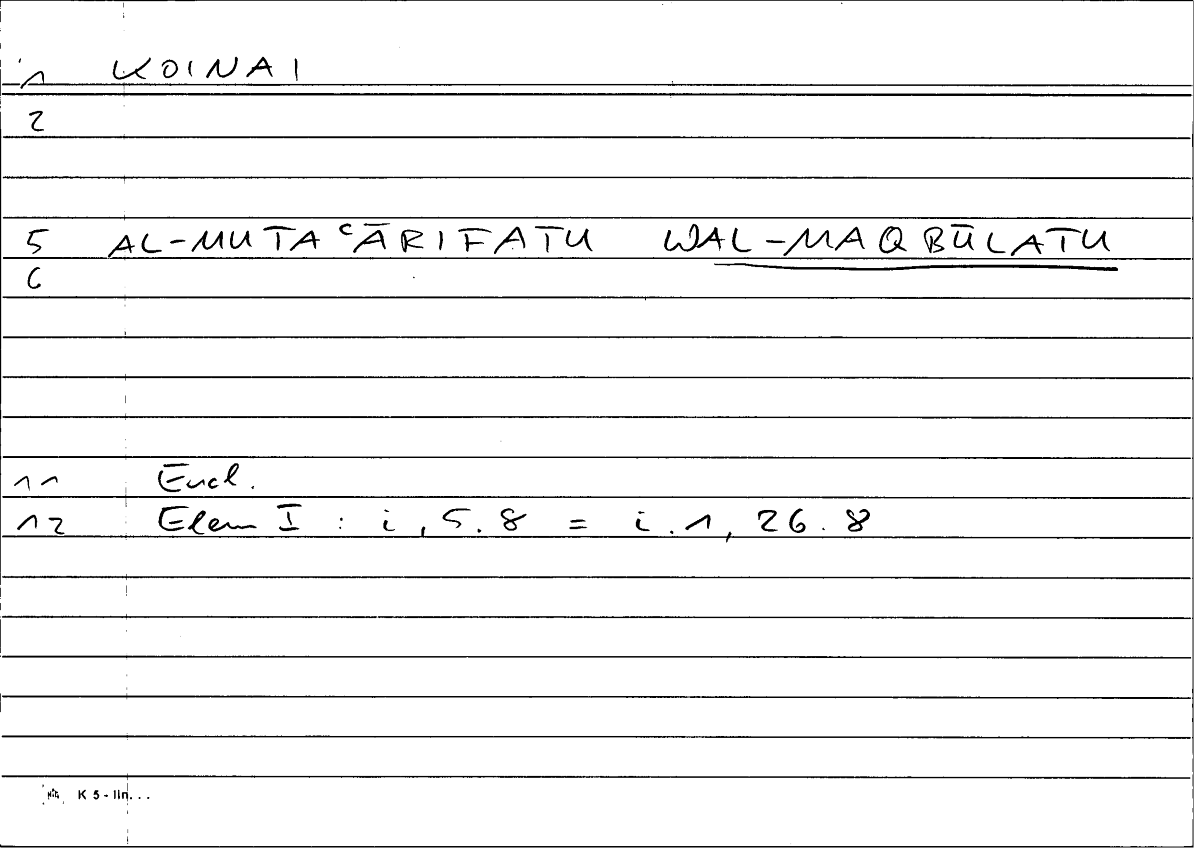 1 KOINAI
2
5 AL-MUTAᶜĀRIFATU WAL-MAQBŪLATU
6
11 Eucl.
12 Elem I : i, 5.8 = i.1, 26.8
K 5 - lin. . .